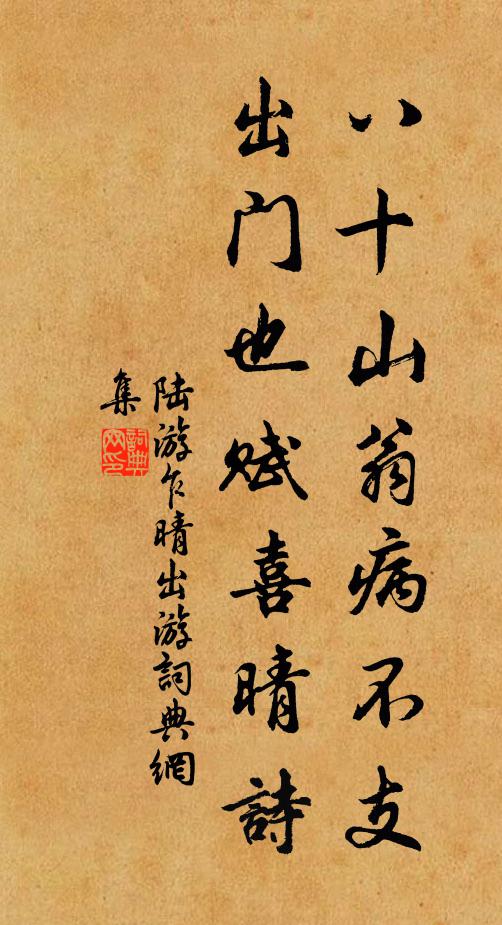 八十山翁病不支
出门也赋喜晴詩
陆游乍晴出游詞典網
集
詞典
网印